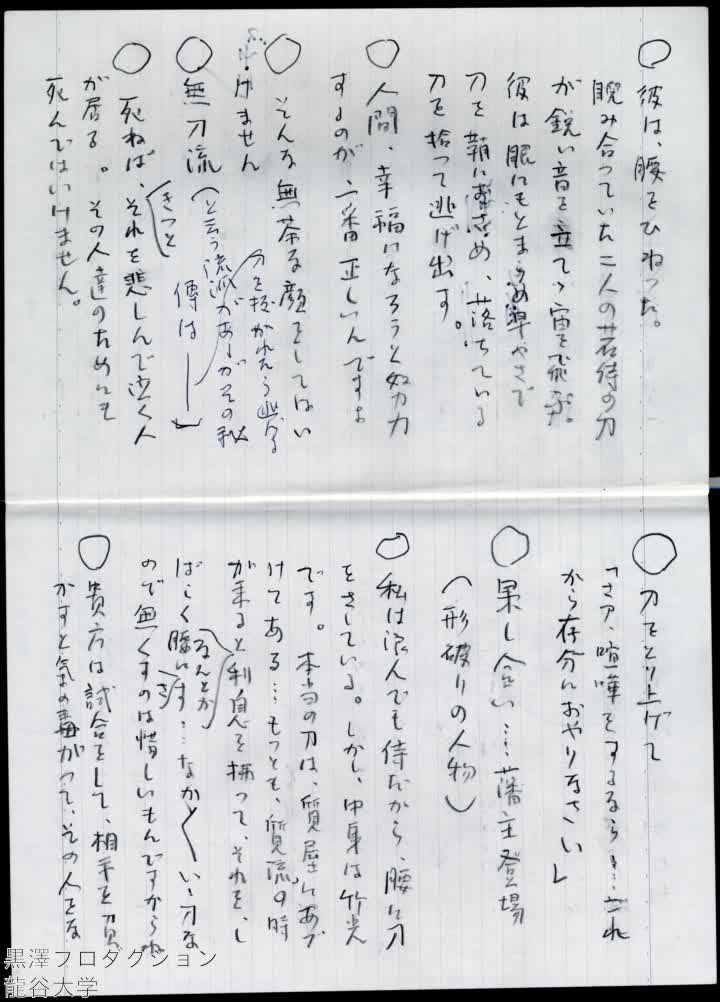 ○ 彼は、腰をひねった。
睨み合っていた二人の若侍の刀
が鋭い音を立てゝ宙を飛ぶ。
彼は眼にもとまらぬ早やさで
刀を鞘におさめ、落ちている
刀を拾って逃げ出す。
○ 人間、幸福になろうと努力
するのが一番正しいんですよ
○ そんな無茶な顔をしてはい
けません
○ 無刀流
(と云う流派があるがその秘
傳は
刀を抜かれたら逃げる
○ 死ねば、きっとそれを悲しんで泣く人
が居る。その人達のためにも
死んではいけません。
○ 刀をとり上げて
「さア、喧嘩をするなら……これ
から存分におやりなさい」
○ 果し合い……藩主登場
(形破りの人物)
○ 私は浪人でも侍だから、腰に刀
をさしている。しかし、中身は竹光
です。本当の刀は、質屋にあづ
けてある…もっとも、質流の時
が来ると利息を払って、それを、し
ばらく腰にさす…なか〱いゝ刀な
なんとか
ので無くすのは惜しいもんですからね
○ 貴方は試合をして、相手を負
かすと気の毒がって、その人をな
黒澤プロダクション
龍谷大学